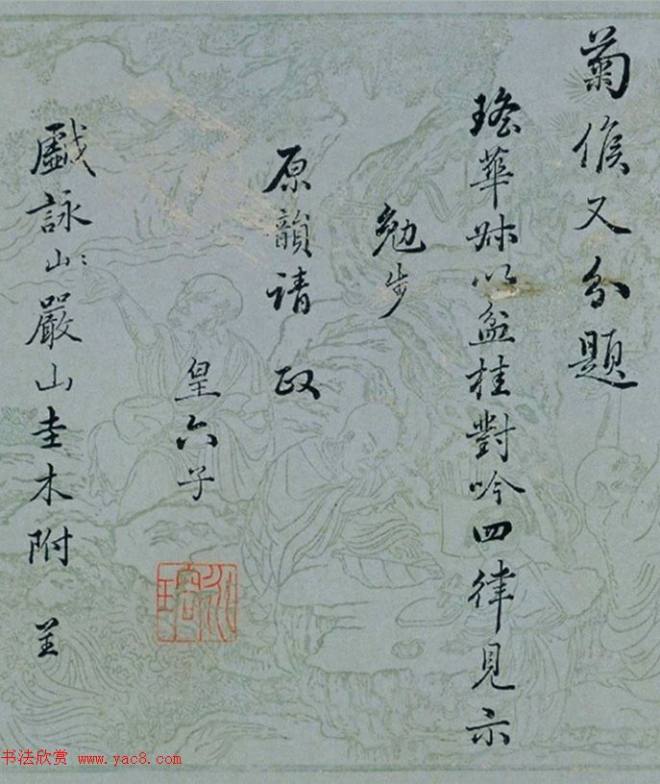 菊候又分題
瑤華叔以盆桂對吟四律見示
勉步
原韻請政
皇六子
戲詠山〻嚴山圭木附呈
书法欣赏 www.yac8.com